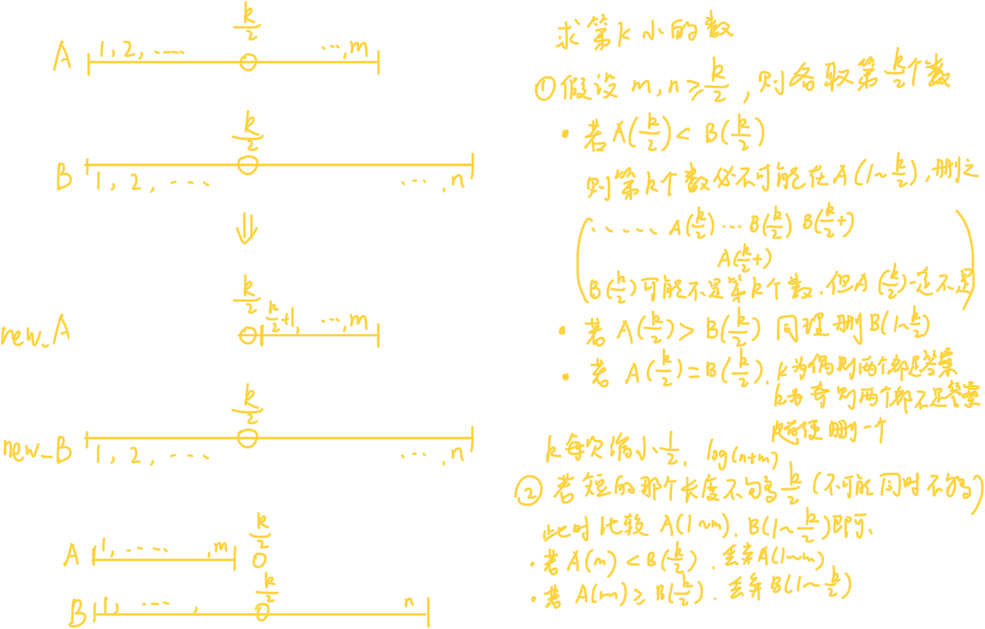 k/2
A 1, 2, ..... ..., m
k/2
B 1, 2, .... ..., n
⇓
k/2
new_A k/2+1, ..., m
k/2
new_B 1, 2, .... ..., n
A 1, ..... , m k/2
k/2
B 1, ...., n
求第k小的数
①假设 m,n≥k/2,则各取第k/2个数
• 若 A(k/2)< B(k/2)
则第k个数必不可能在A(1~k/2),删之
(...... A(k/2)...B(k/2) B(k/2+)
A(k/2+)
B(k/2)可能不是第k个数.但A(k/2)一定不是)
• 若 A(k/2)> B(k/2) 同理删B(1~k/2)
• 若 A(k/2)=B(k/2). k为偶则两个都是答案
k为奇则两个都不是答案
随便删一个
k每次缩小1/2. log(n+m)
② 若短的那个长度不够k/2 (不可能同时不够)
此时比较 A(1~m). B(1~k/2)即可.
• 若 A(m) < B(k/2). 丢弃A(1~m)
• 若 A(m) ≥ B(k/2). 丢弃B(1~k/2)